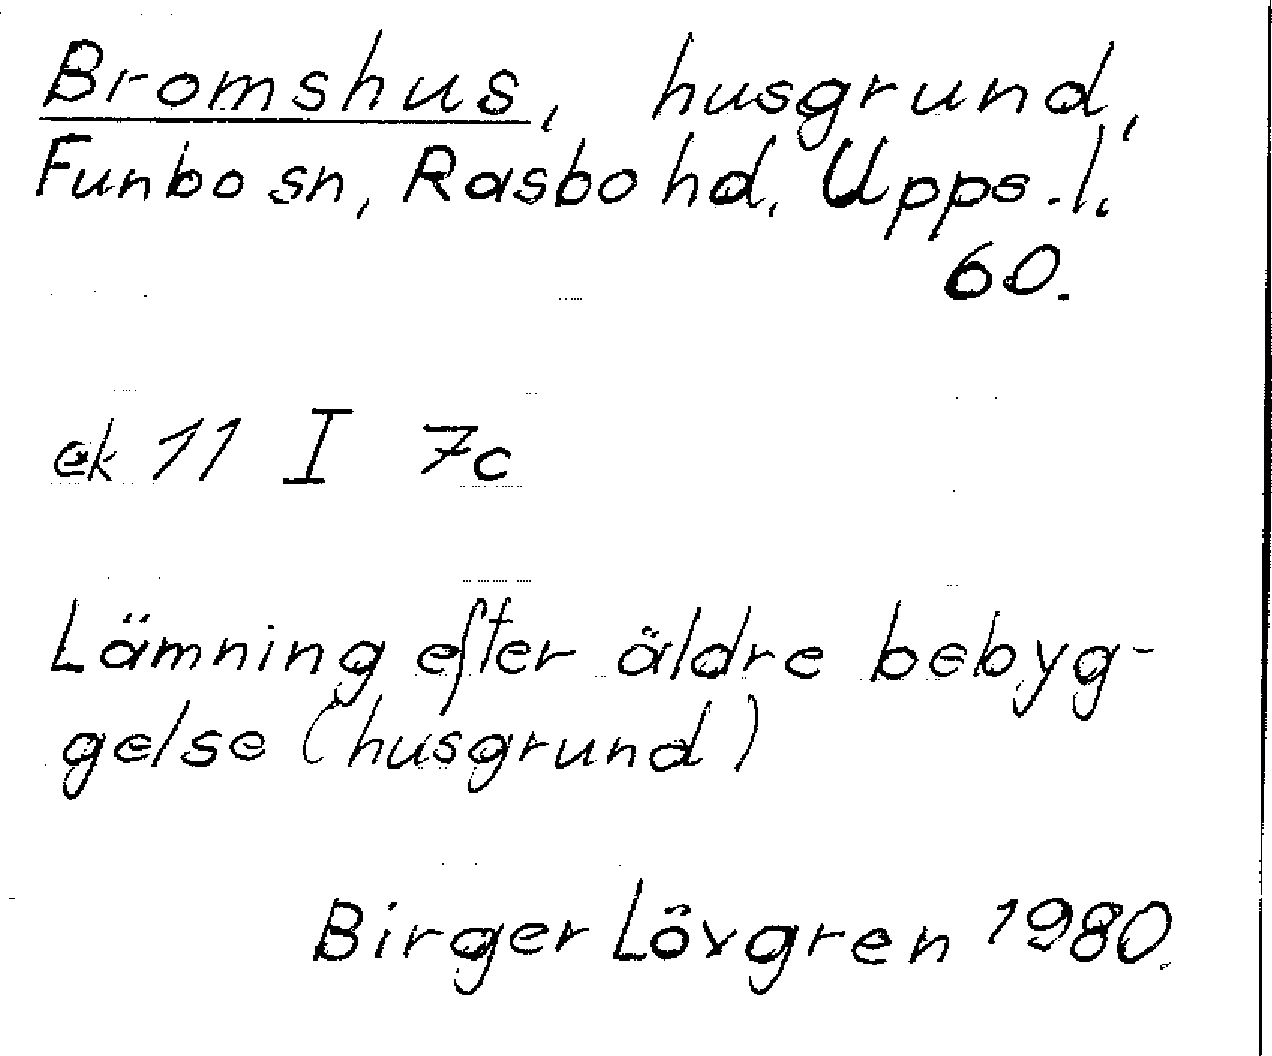 Bromshus, husgrund,
Funbo sn, Rasbo hd, Upps. l.
60.
ek 11 I 7c
Lämning efter äldre bebyg-
gelse (husgrund)
Birger Lövgren 1980.